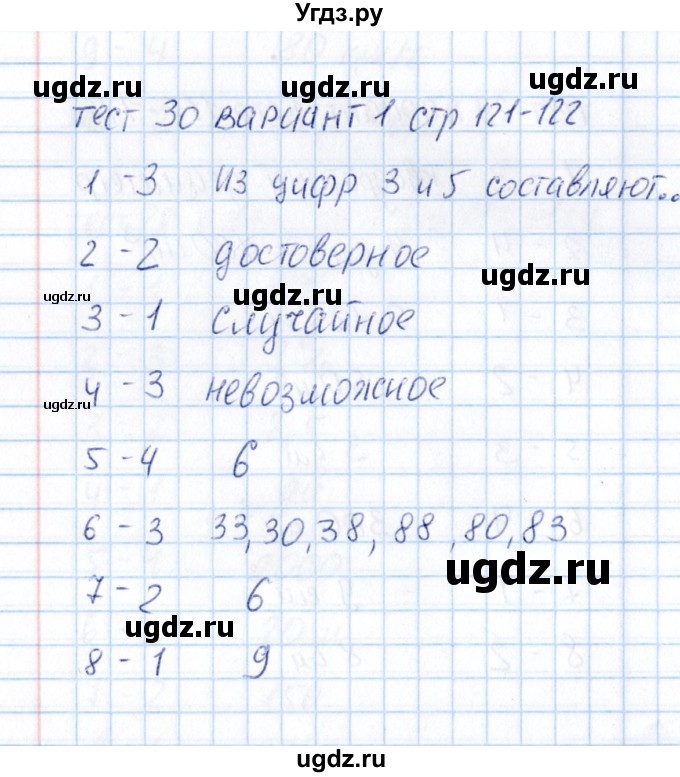 Угдз.ру
ugdz.ru ugdz.ru
тест 30 вариант 1 стр 121-122
1 - 3 Из цифр 3 и 5 составляют..
ugdz.ru
2 - 2 достоверное
ugdz.ru ugdz.ru
3 - 1 случайное
4 - 3 невозможное
ugdz.ru
5 - 4 6
6 - 3 33, 30, 38, 88, 80, 83
ugdz.ru
7 - 2 6
ugdz.ru
8 - 1 9
ugdz.ru